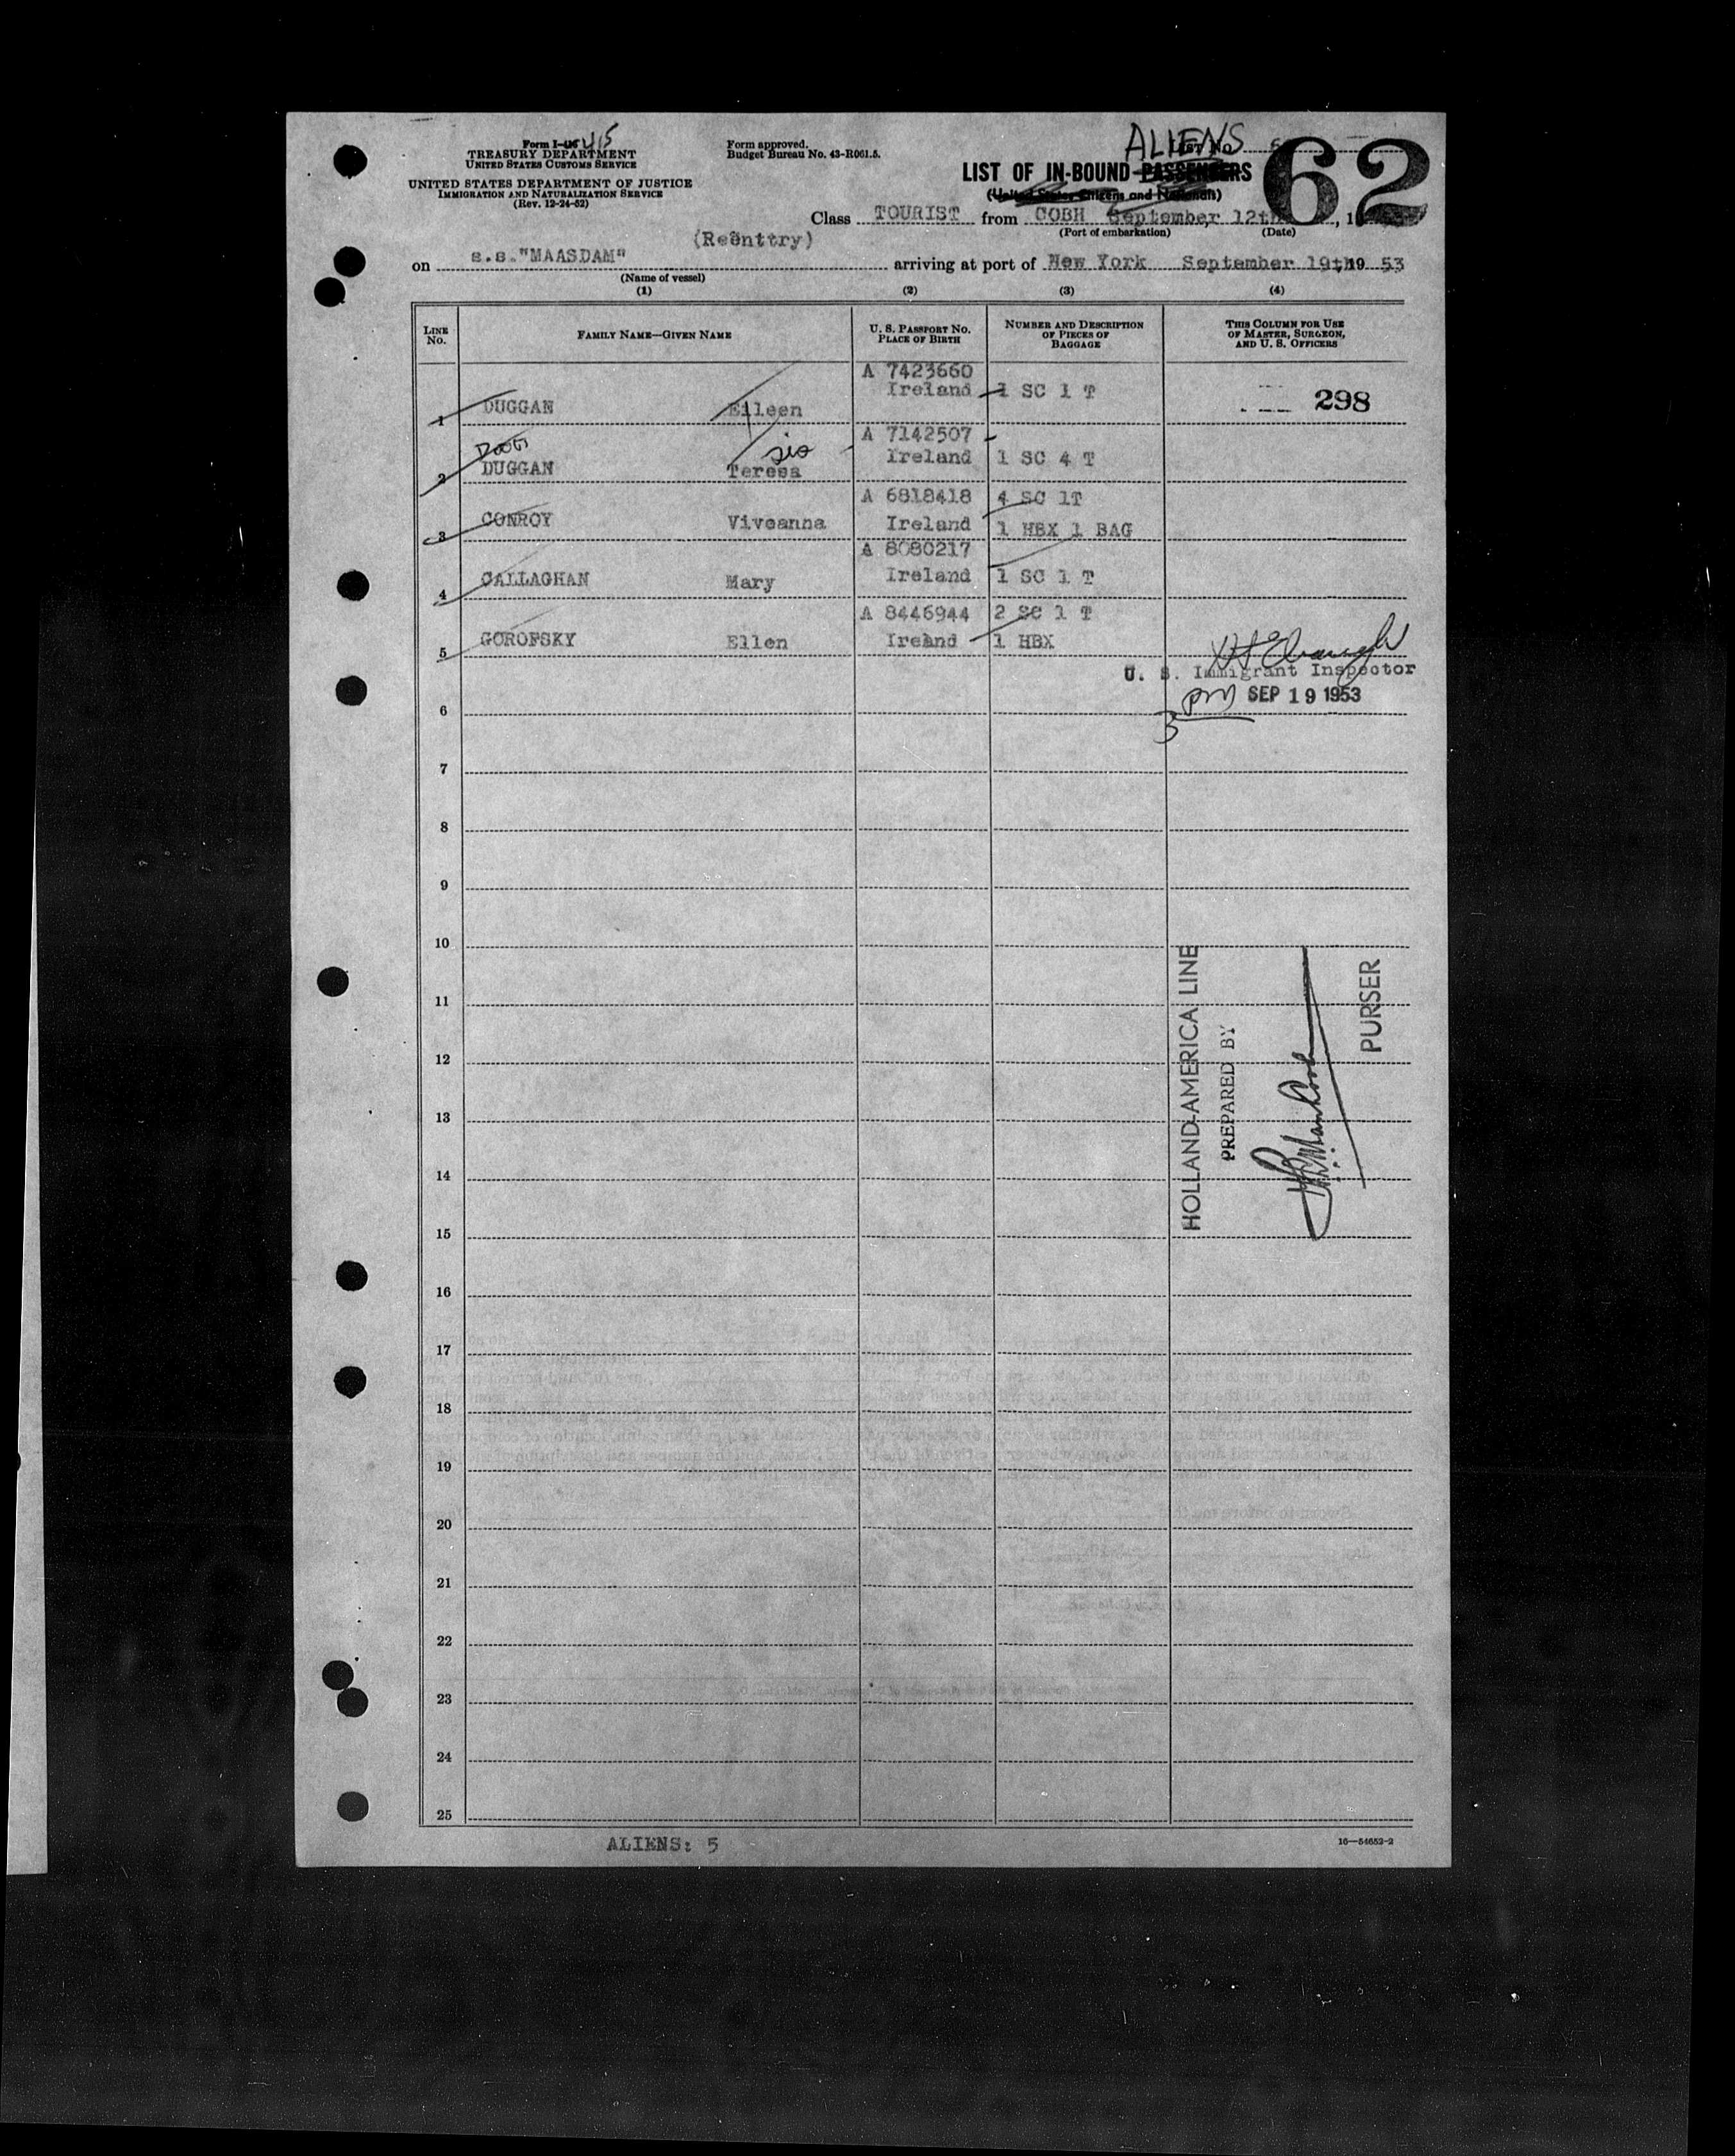 Form I-415
TREASURY DEPARTMENT
UNITED STATES CUSTOMS SERVICE
UNITED STATES DEPARTMENT OF JUSTICE
IMMIGRATION AND NATURALIZATION SERVICE
(Rev. 12-24-52)
Form approved.
Budget Bureau No. 43-R061.5.
ALIENS
62
LIST OF IN-BOUND PASSENGERS
(United States Citizens and Nationals)
Class TOURIST from COBH September, 12th, 1
(Port of embarkation) (Date)
(Reënttry)
on s.s."MAASDAM" arriving at port of New York September 19th 19 53
(Name of vessel)
(1) (2) (3) (4)
LINE No. FAMILY NAME—GIVEN NAME U. S. PASSPORT No. PLACE OF BIRTH NUMBER AND DESCRIPTION OF PIECES OF BAGGAGE THIS COLUMN FOR USE OF MASTER, SURGEON, AND U. S. OFFICERS
A 7423660
1 DUGGAN Eileen Ireland 1 SC 1 T 298
A 7142507
2 DUGGAN Teresa Ireland 1 SC 4 T
A 6818418 4 SC 1T
3 CONROY Viveanna Ireland 1 HBX 1 BAG
A 8080217
4 CALLAGHAN Mary Ireland 1 SC 1 T
A 8446944 2 SC 1 T
5 GOROFSKY Ellen Ireand 1 HBX
U. S. Immigrant Inspector
pm SEP 19 1953
3
6
7
8
9
10
11
12
13
14
15
HOLLAND-AMERICA LINE
PREPARED BY
PURSER
16
17
18
19
20
21
22
23
24
25
ALIENS: 5
16—54652-2